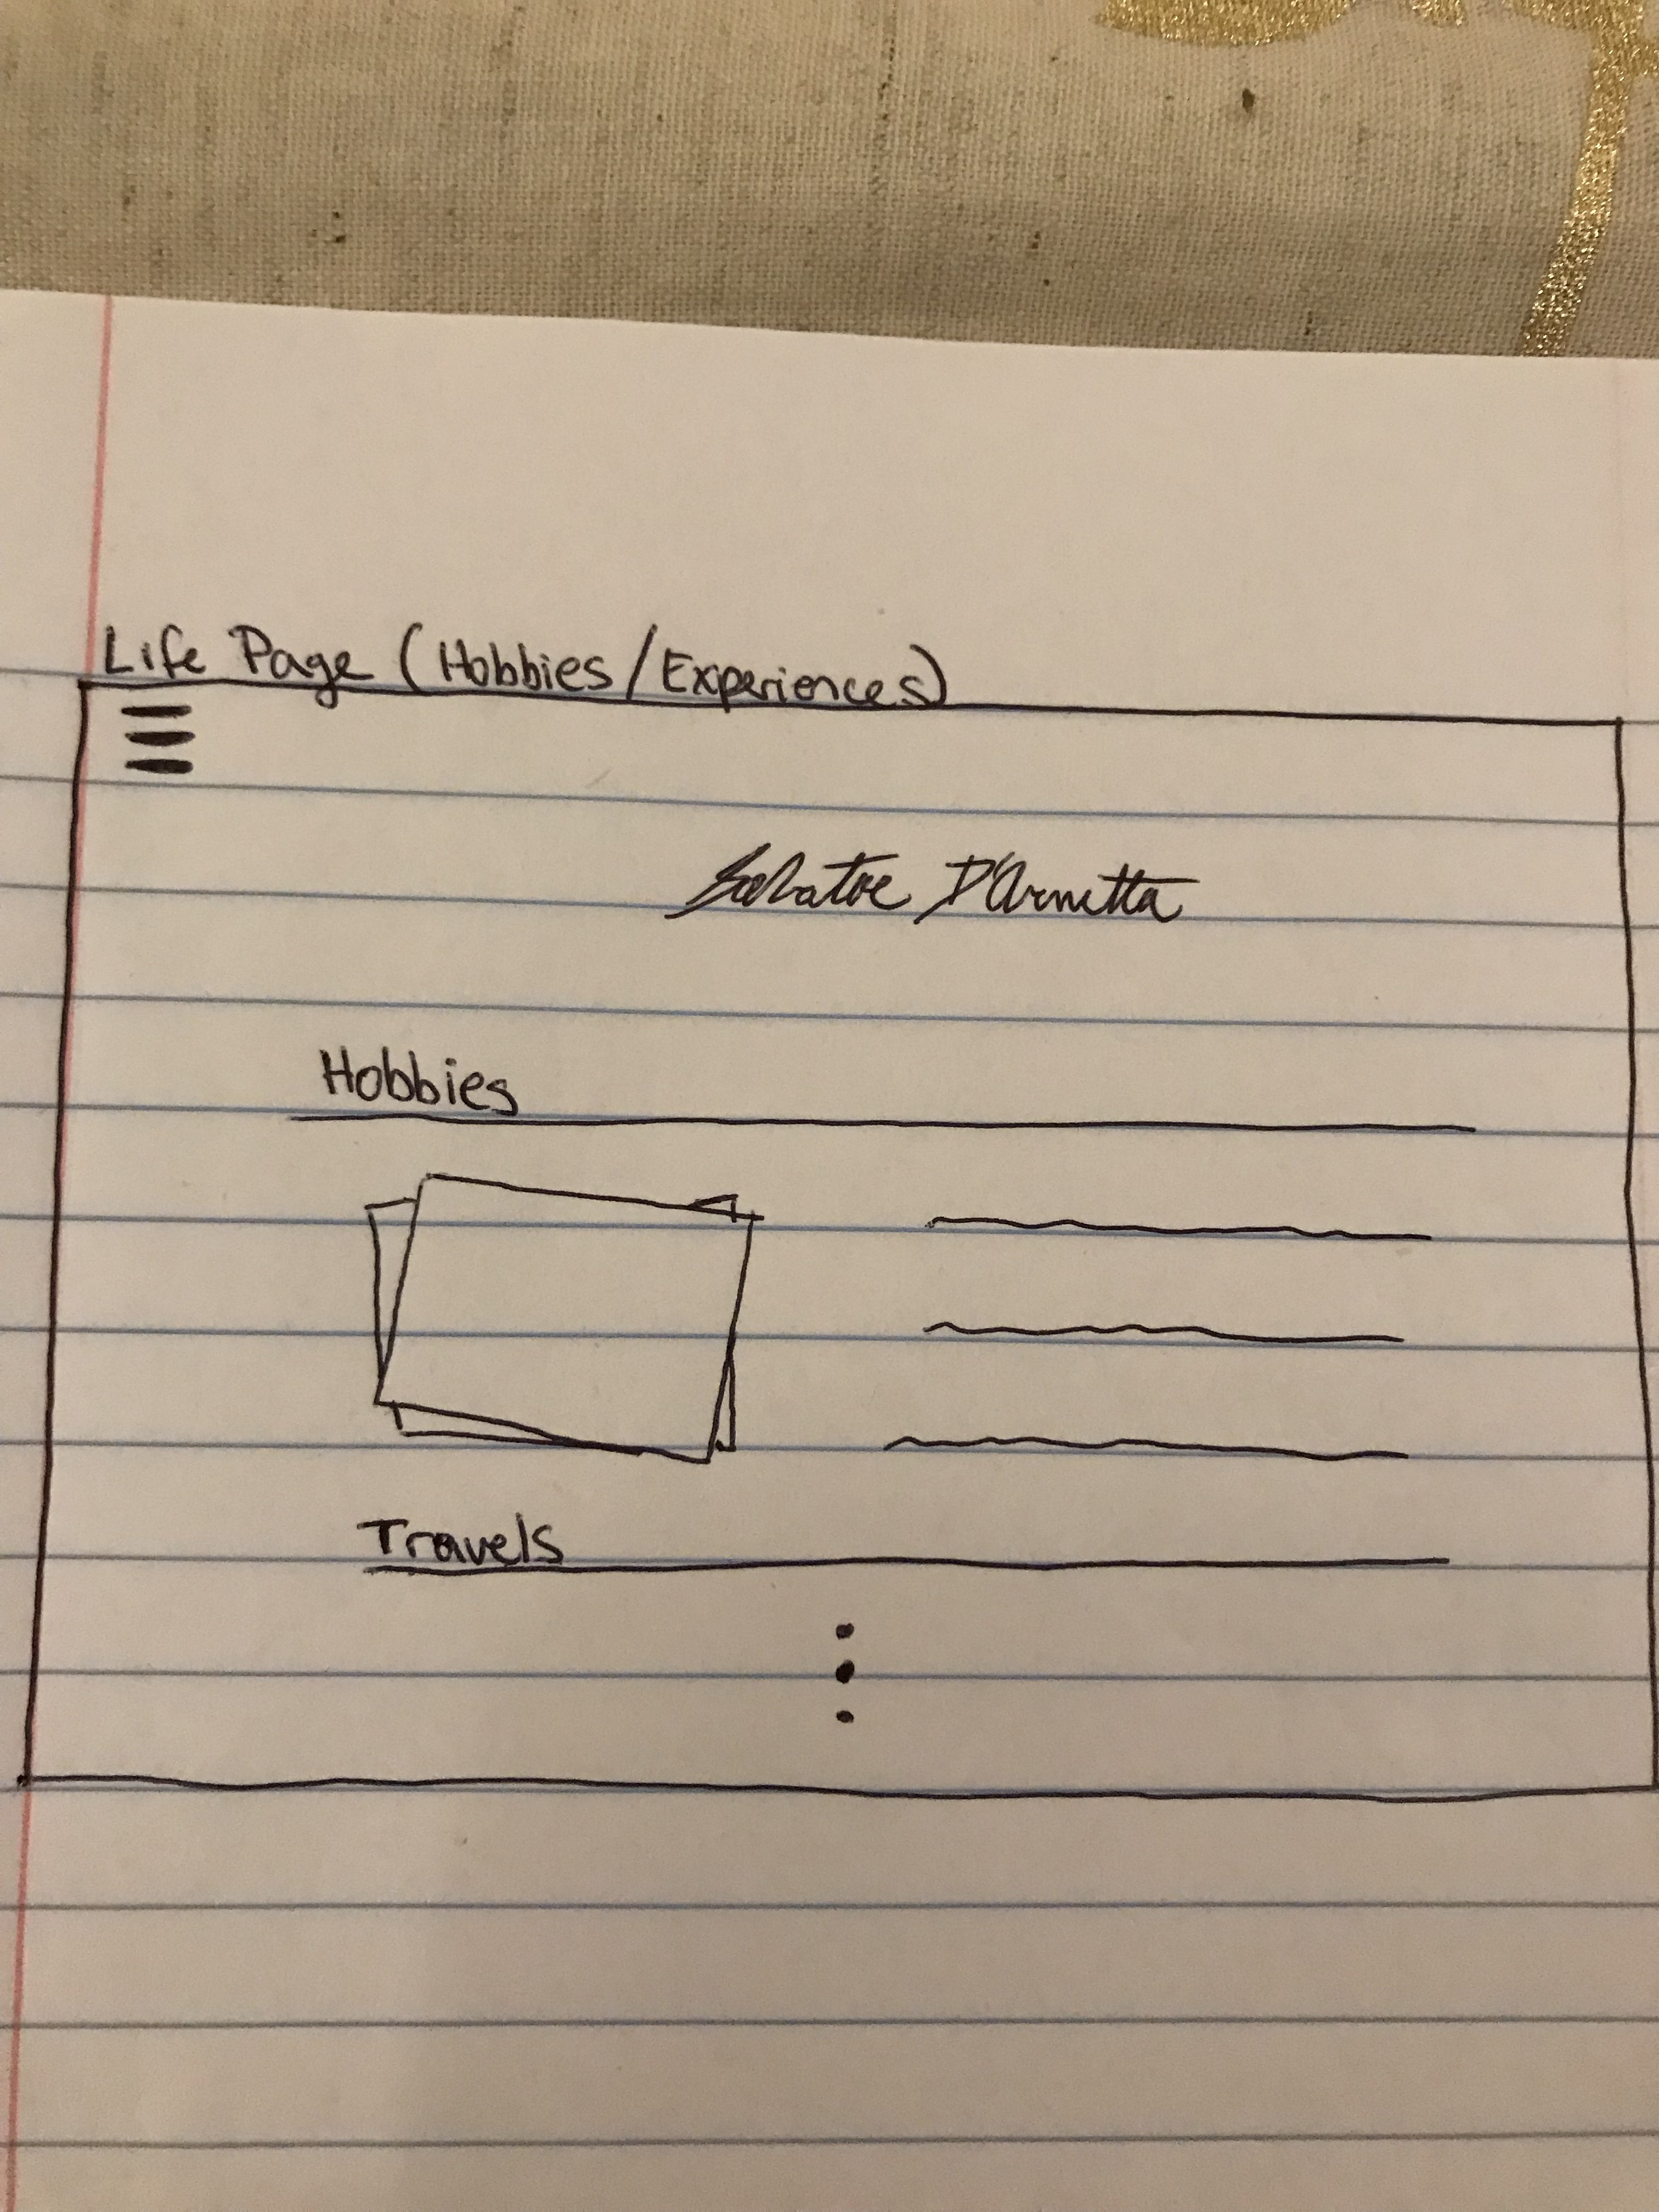 Life Page (Hobbies/Experiences)
Salvatore D'Arnetta
Hobbies
Travels